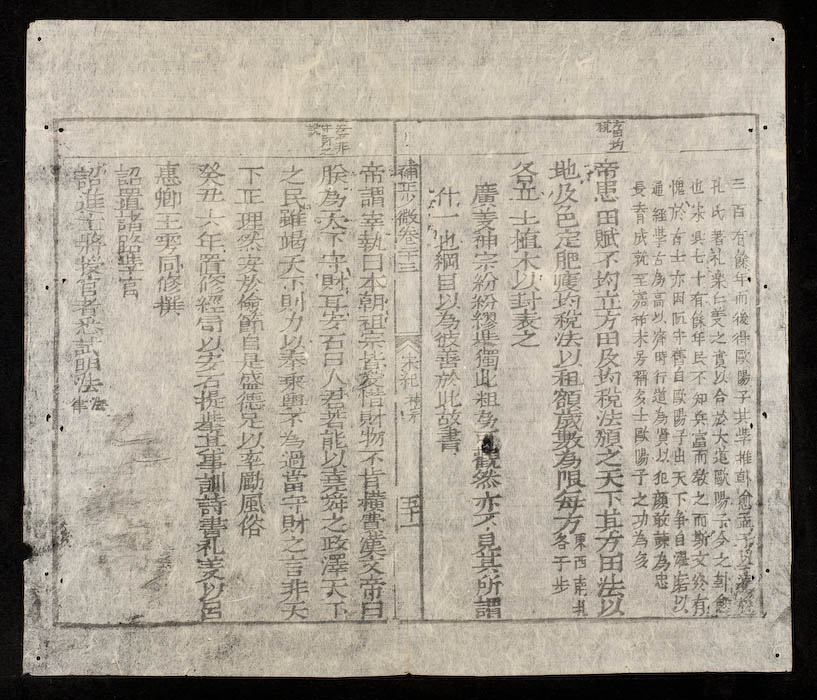 三百有餘年而後得歐陽子其學推韓愈孟子以達於
孔氏著礼樂仁義之實以合於大道歐陽子今之韓愈
也宋兵七十有餘年民不知兵富而教之而斯文終有
愧於古士亦因陋守舊自歐陽子出天下爭自濯磨以
通經學古為高以濟時行道為賢以犯顏敢諫為忠
長育成就至嘉祐末号稱多士歐陽子之功為多
方田均
稅
帝患田賦不均立方田及均稅法頒之天下其方田法以
地及色定肥瘦均稅法以租額歲數為限每方東西南北各千步
各立土植木以封表之
廣義神宗紛紛繆舉獨此租為可觀然亦不見其所謂
什一也綱目以為彼善於此故書
補正少微卷三十三
宋紀
神宗
五十二
帝謂宰執曰本朝祖宗皆愛惜財物不肯橫費漢文帝曰
朕為天下守財耳安石曰人君若能以堯舜之政澤天下
之民雖竭天下則力以奉乘輿不為過當守財之言非天
下正理然安於儉節自是盛德足以率勵風俗
癸丑六年置修經局以安石提舉其事訓詩書礼義以呂
惠卿王雱同修撰
詔置諸路學官
詔進士將授官者悉試明法法律